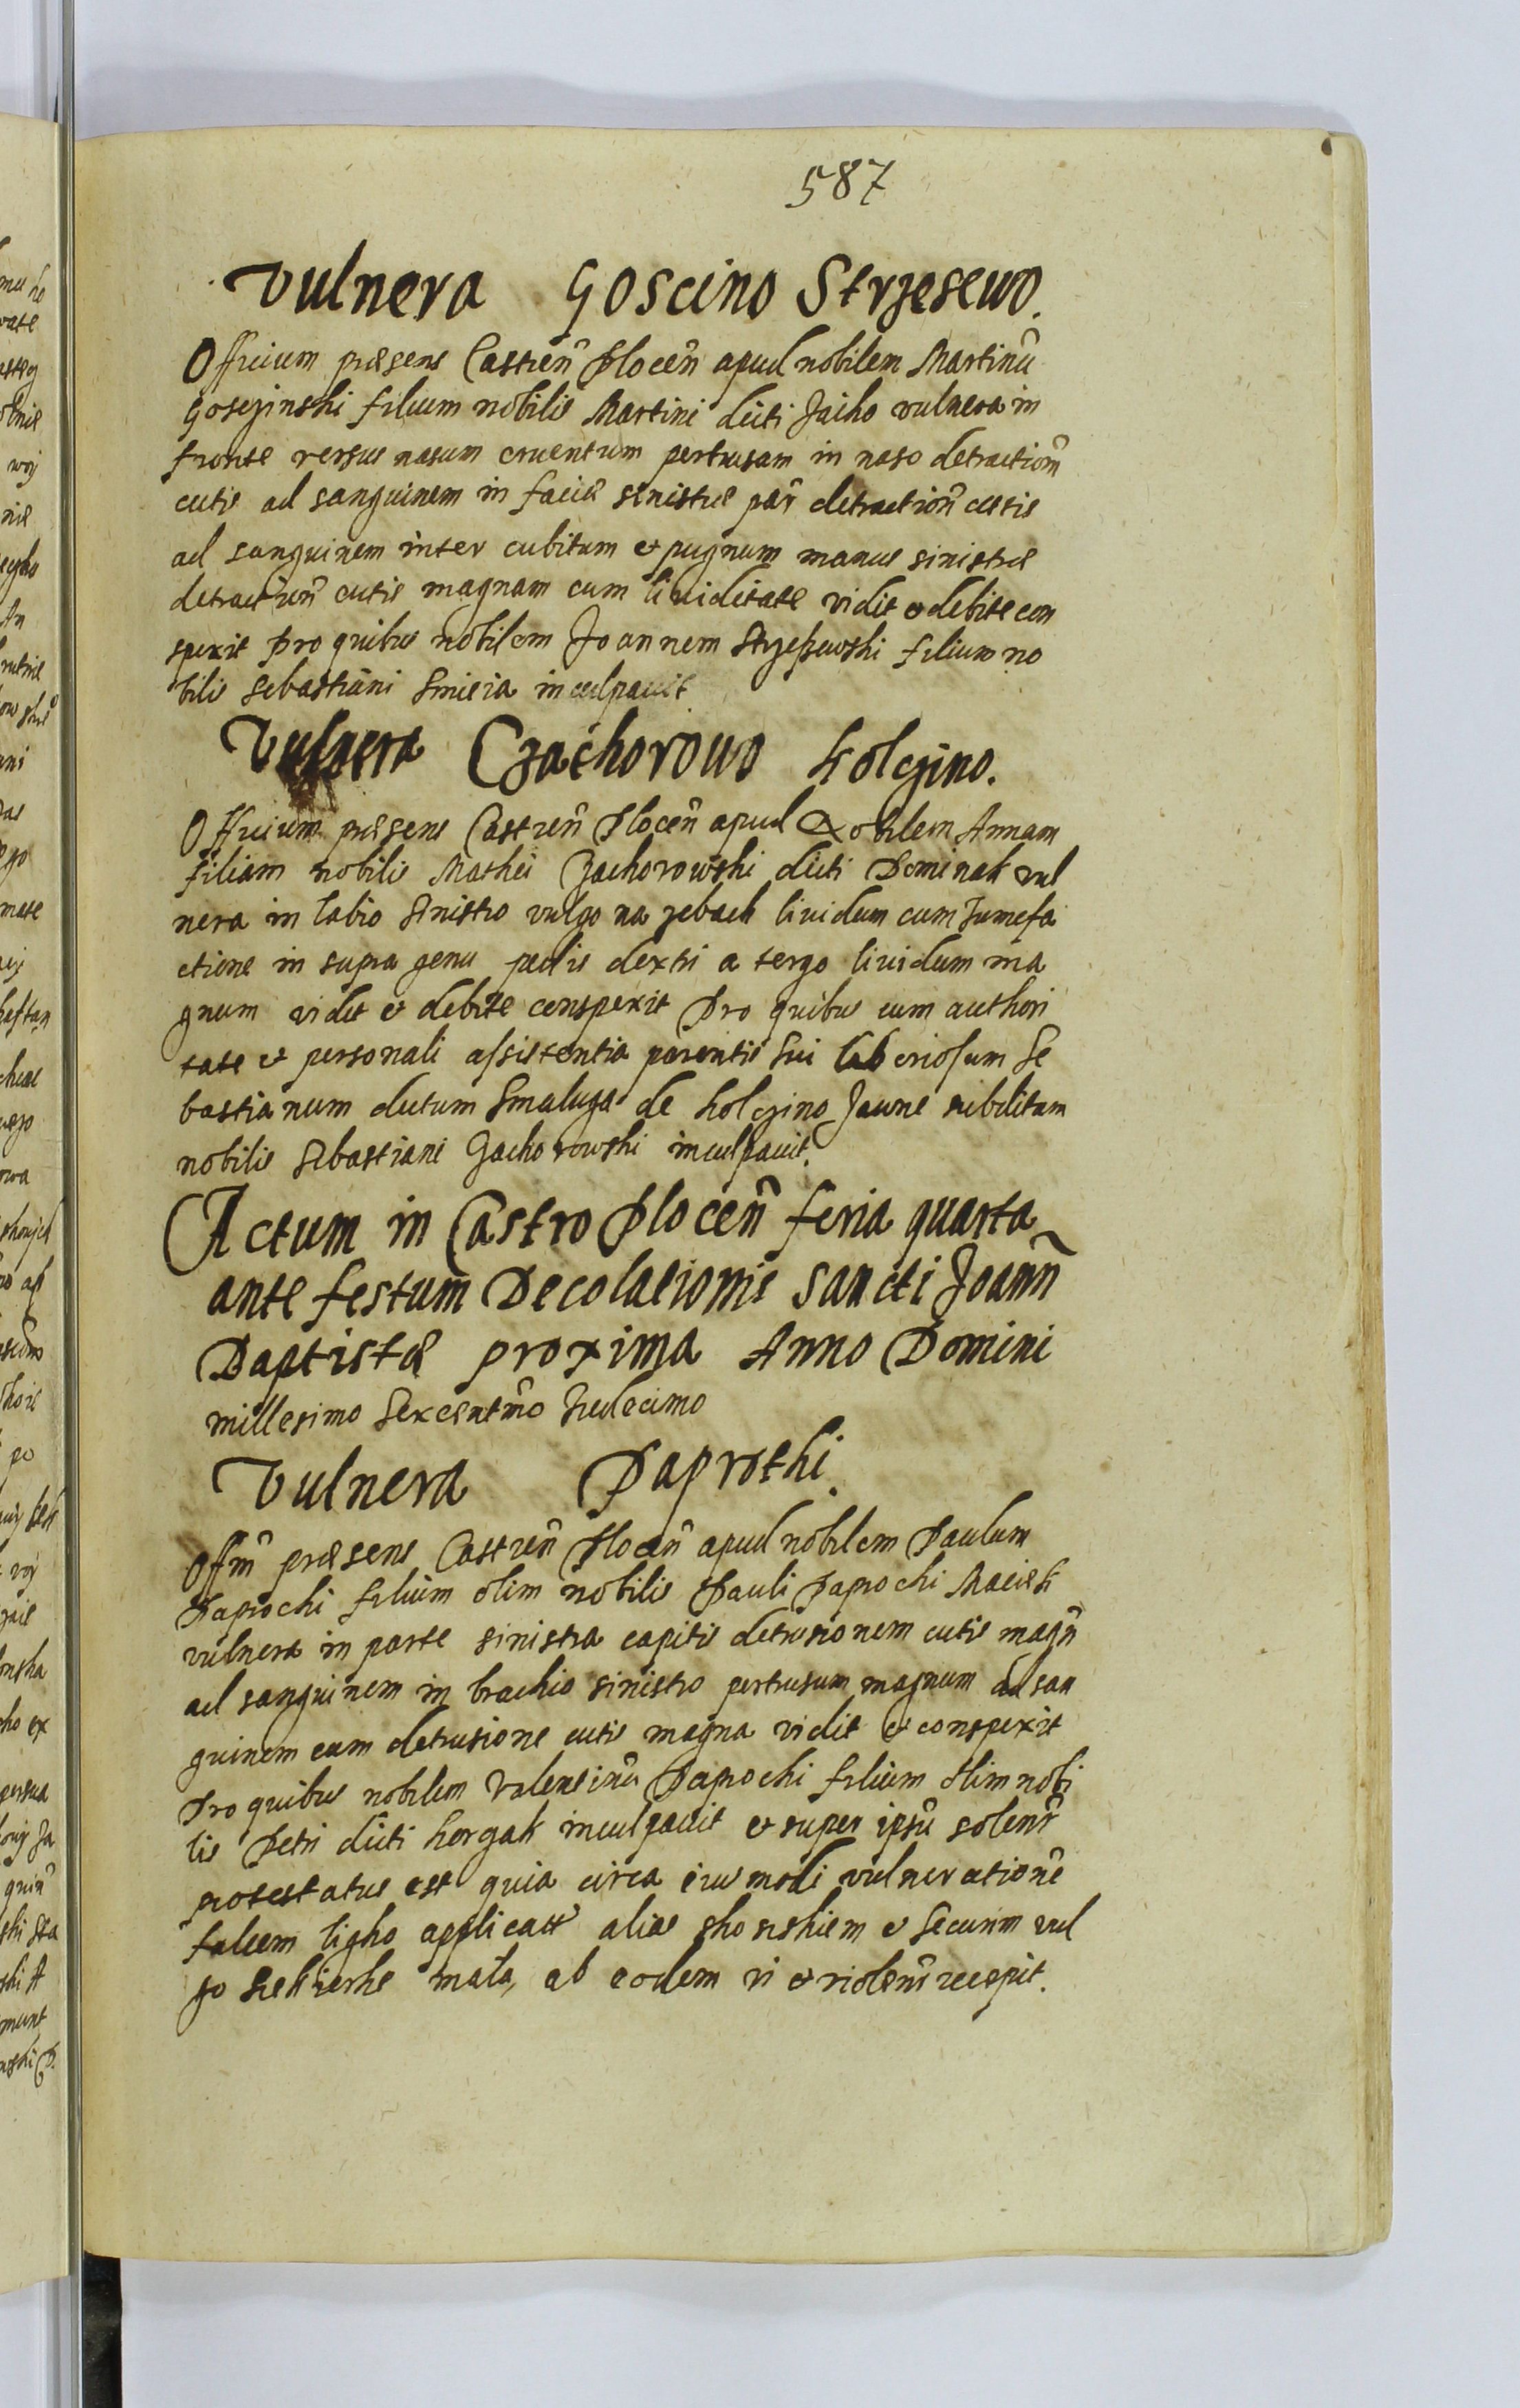 587
Vulnera Goscino Strzesewo.
Officium præsens Castren̄ Plocen̄ apud nobilem Martinū
Gosczinski filium nobilis Martini dicti Jaiko vulnera in
fronte versus nasum cruentum pertusam in naso detractionē
cutis ad sanguinem in facie sinistræ par detractionē cutis
ad sanguinem inter cubitum et pugnum manus sinistræ
detractionē cutis magnam cum liuiditate vidit et debite con
spexit Pro quibus nobilem Joannem Strzeszewski filium no
bilis Sebastiani inculpauit
Vulnera Czachorowo Kolczino.
Officium præsens Castren̄ Plocen̄ apud nobilem Annam
filiam nobilis Mathei Czachorowski dicti Dominak vul
nera in labio sinistro vulgo na zebach liuidum cum tumefa
ctione in supra genu pedis dextri a tergo liuidum ma
gnum vidit et debite conspexit Pro quibus cum authori
tate et personali assistentia parentis sui laboriosum Se
bastianum dictum Smaluga de Kolczino Jawne subditum
nobilis Sebastiani Czachorowski inculpauit.
Actum in Castro Plocen̄ feria quarta
ante festum Decolationis Sancti Joann̄
Baptistæ proxima Anno Domini
millesimo Sexcentmo
Vulnera Paprothi.
Offm̄ præsens Castren̄ Plocen̄ apud nobilem Paulum
Paprochi filium olim nobilis Pauli Paprochi Maciek
vulnera in parte sinistra capitis detrusionem cutis magn̄
ad sanguinem in brachio sinistro pertusum magnum ad san
guinem cum detrusione cutis magna vidit et conspexit
Pro quibus nobilem Valentinū Paprochi filium olim nobi
lis Petri dicti inculpauit et super ipsū solenr
protestatus est quia circa eiusmodi vulneratione
falcem applicatt alias et securim vul
go siekierke mala, ab eodem vi et violenr recepit.